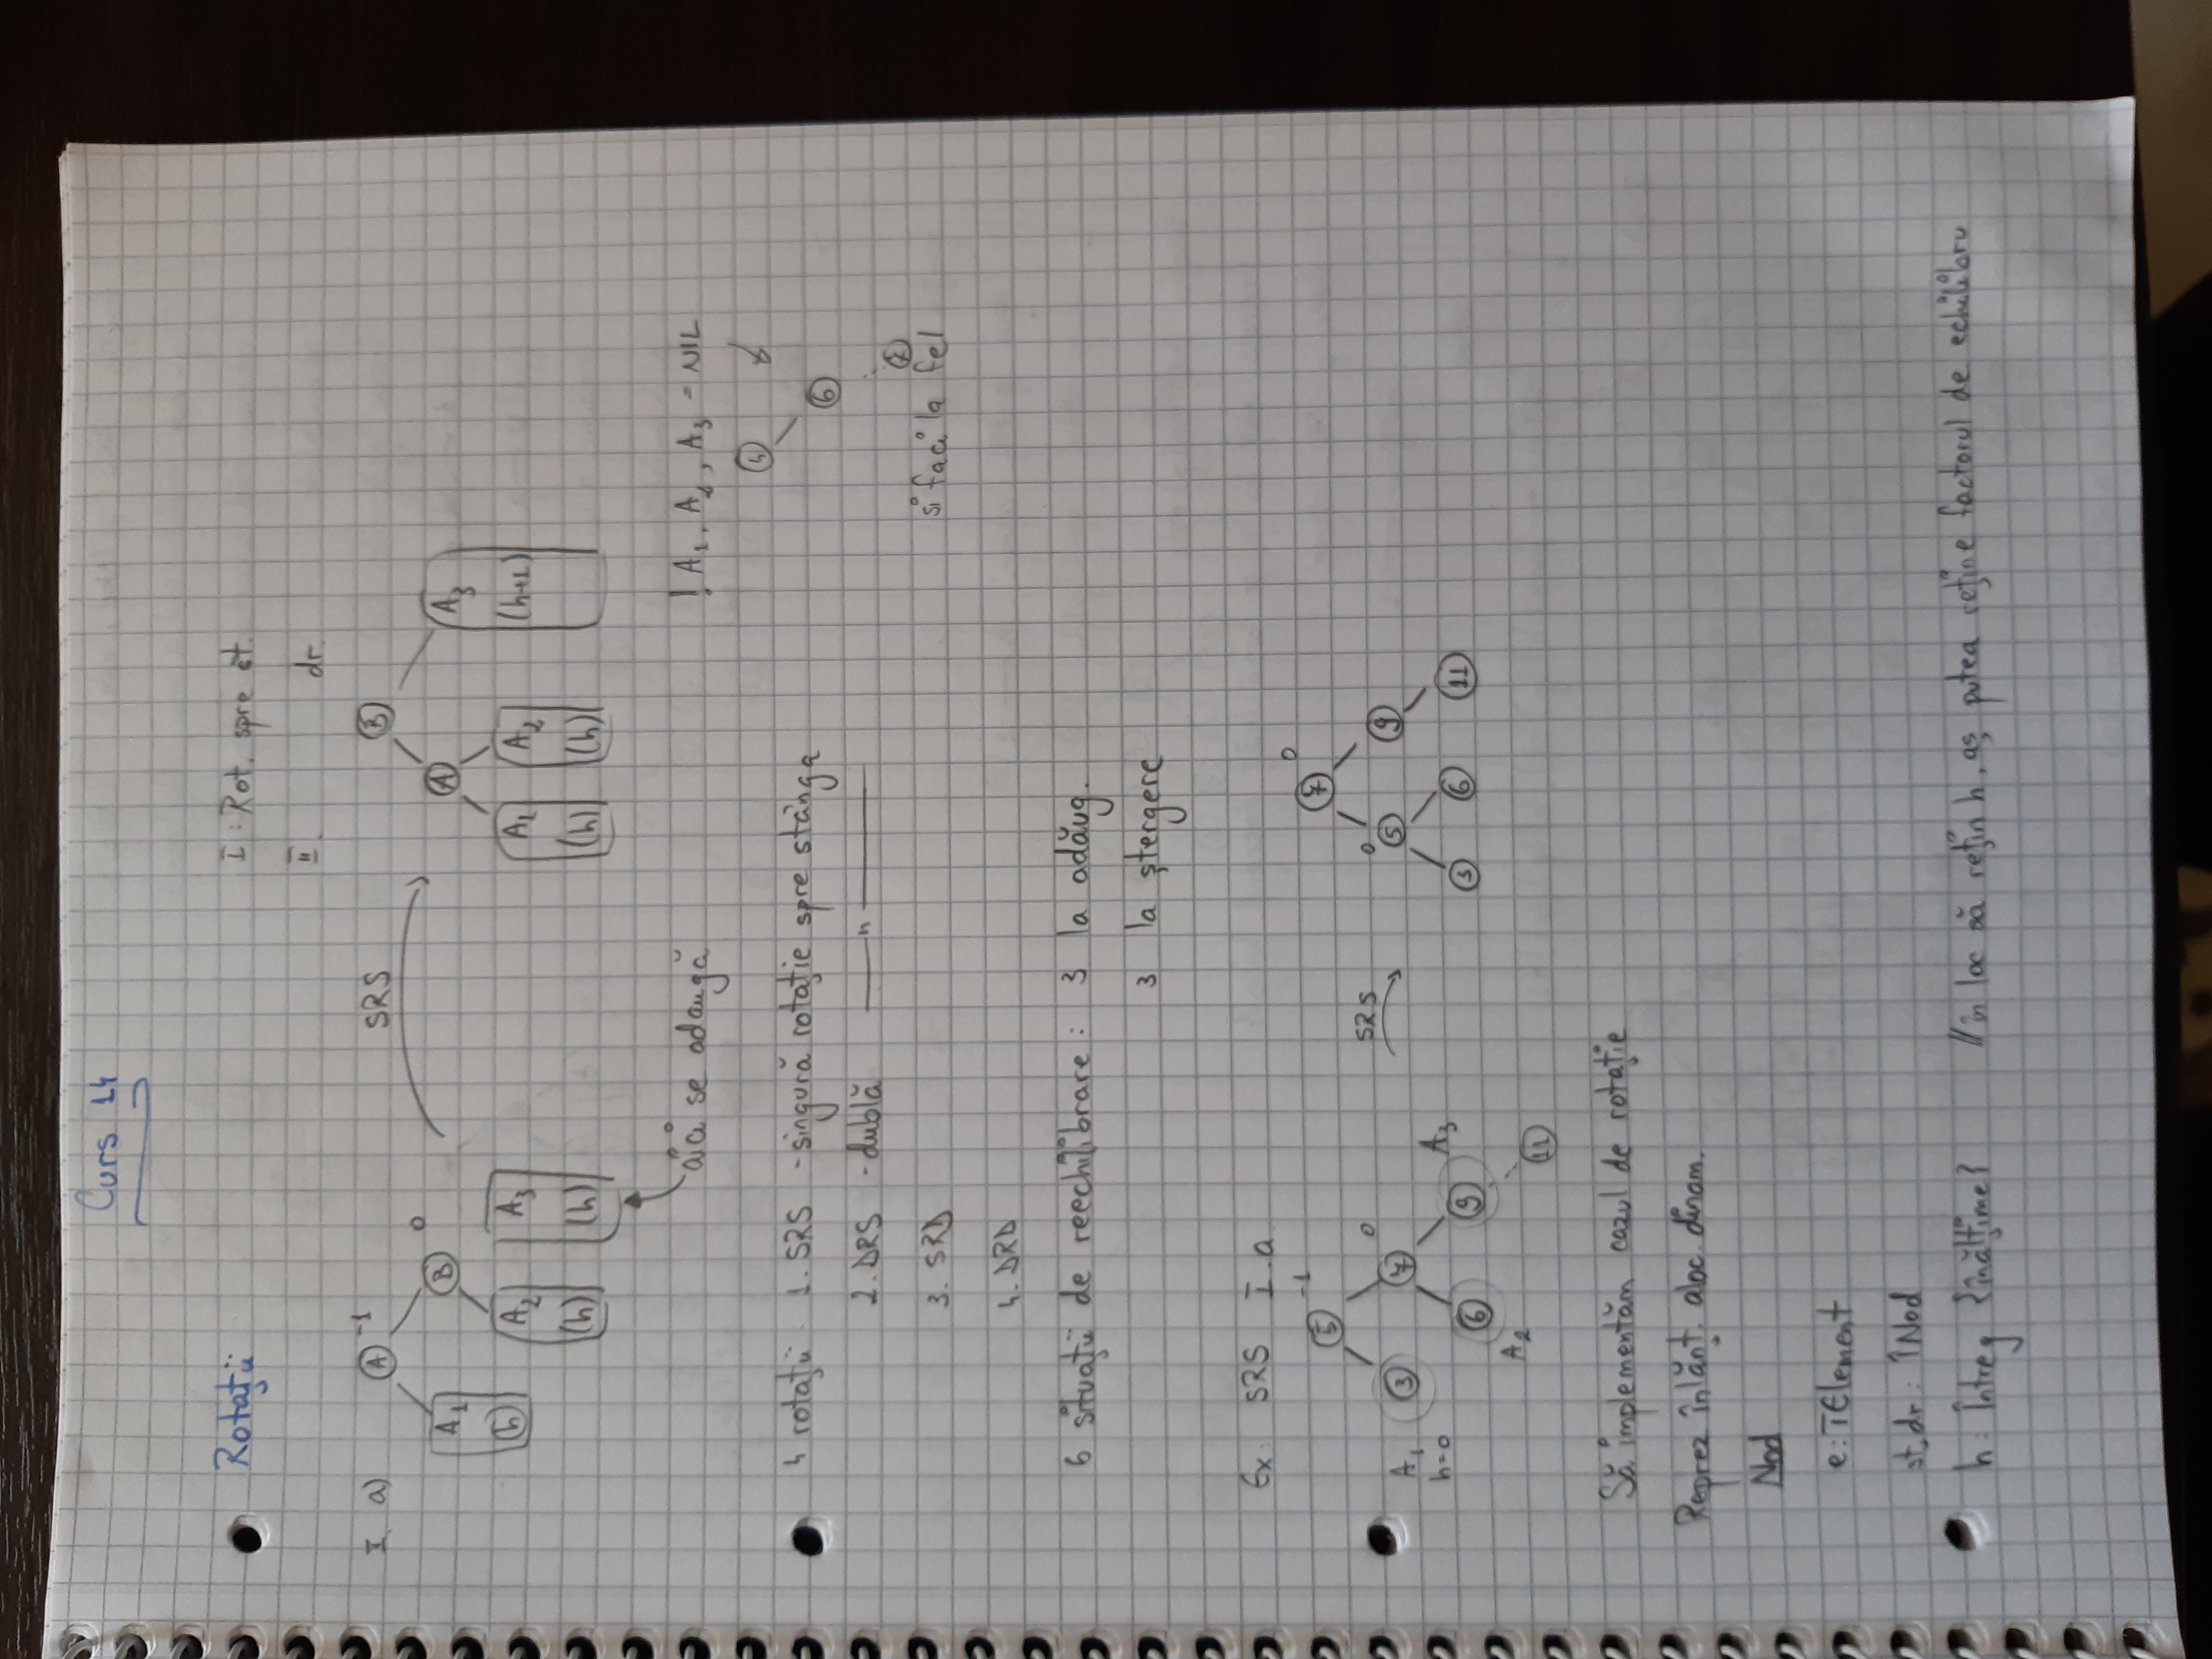 Curs 14
Rotații
I : Rot. spre st.
II. dr.
I. a) A -1 SRS B
B 0 A
A1 (h) A2 (h) A3 (h) A1 (h) A2 (h) A3 (h+1)
aici se adaugă
! A1, A2, A3 = NIL
4
6
7
și faci la fel
4 rotații : 1. SRS - singură rotație spre stânga
2. DRS - dublă —— " ——
3. SRD
4. DRD
6 situații de reechilibrare : 3 la adăug.
3 la ștergere
Ex: SRS I.a
5 -1 SRS 7 0
A1 h=0 3 7 0 0 5 9
A2 6 9 A3 3 6 11
11
Să implementăm cazul de rotație
Reprez înlănț. aloc. dinam.
Nod
e: TElement
st, dr : ↑Nod
h : Întreg {înălțime} // în loc să rețin h, aș putea reține factorul de echilibru